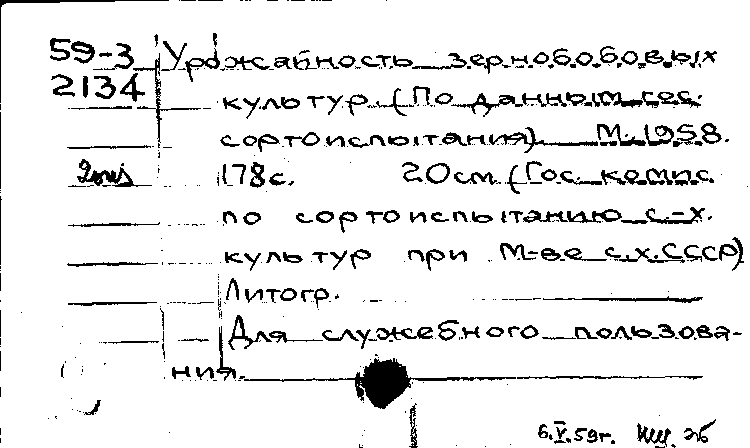 59-3 Урожайность зернобобовых
2134 культур (По данным гос.
сортоиспытания). М. 1958.
178с. 20см (Гос. комис.
по сортоиспытанию с.-х.
культур при М-ве с.х. СССР)
Литогр.
Для служебного пользова-
ния.
6.V.59г.